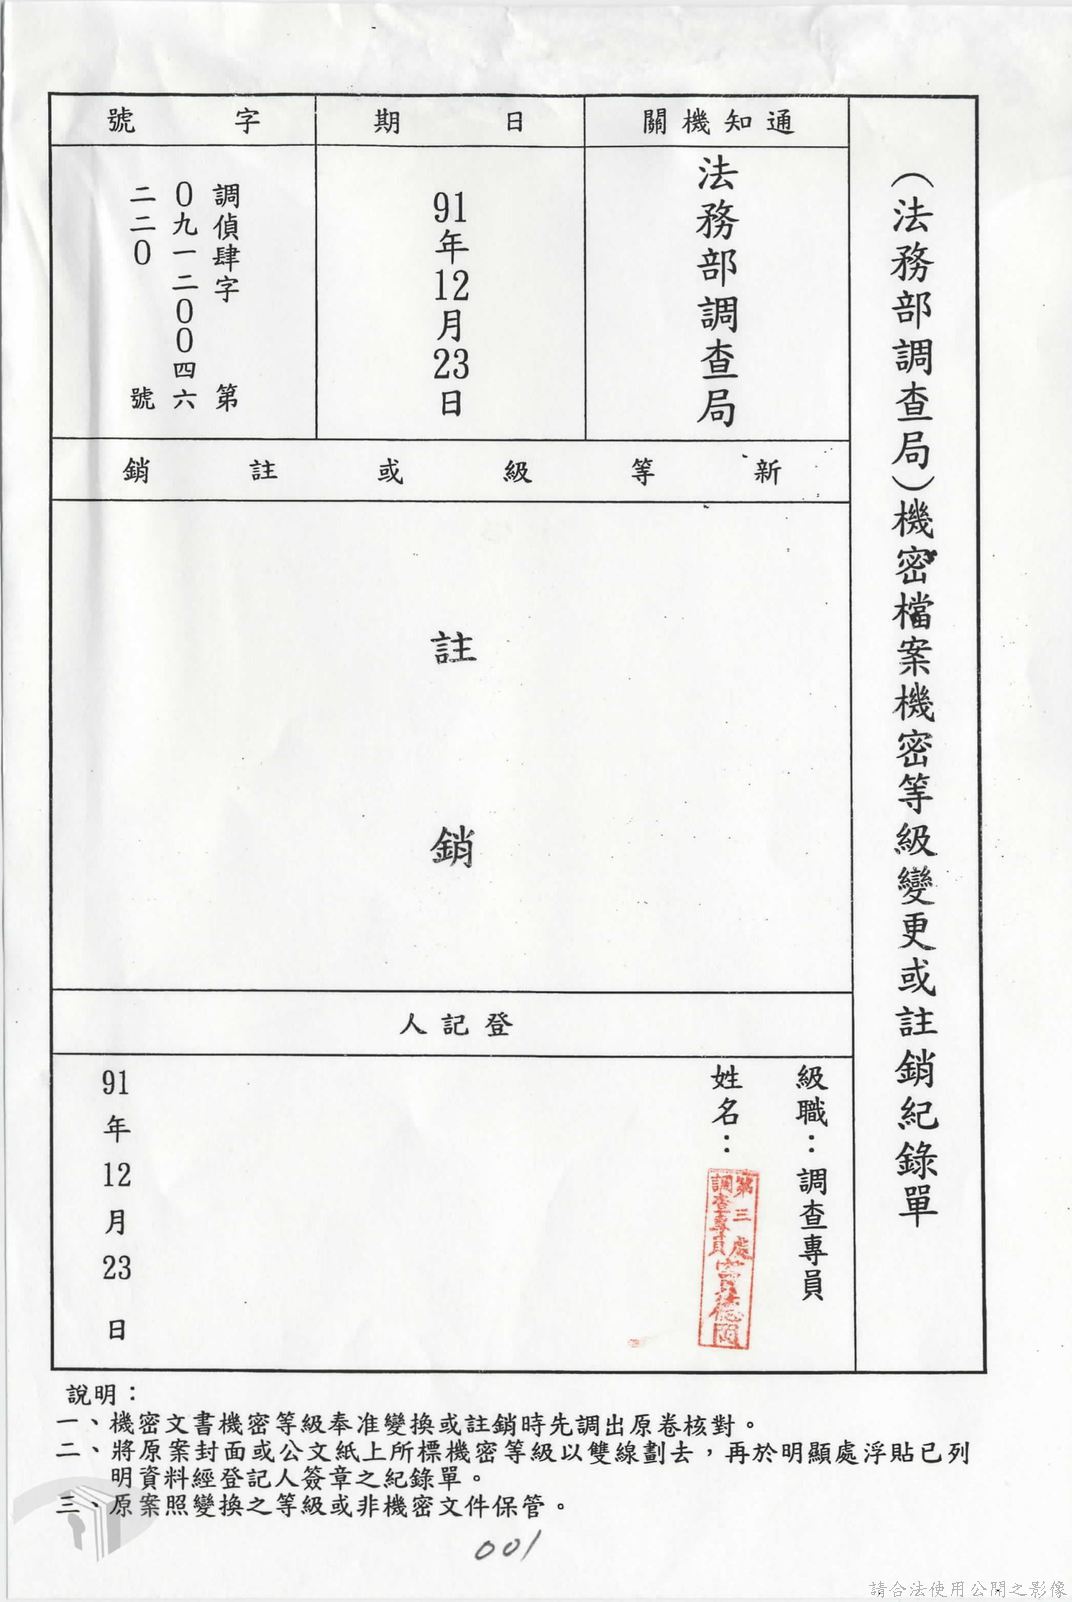 （法務部調查局）機密檔案機密等級變更或註銷紀錄單
通知機關
法務部調查局
日期
91年12月23日
字號
調偵肆字第
０九一二００四六
二二０號
新等級或註銷
註銷
登記人
級職：調查專員
姓名：
第三處
調查專員
91年12月23日
說明：
一、機密文書機密等級奉准變換或註銷時先調出原卷核對。
二、將原案封面或公文紙上所標機密等級以雙線劃去，再於明顯處浮貼已列
明資料經登記人簽章之紀錄單。
三、原案照變換之等級或非機密文件保管。
001
請合法使用公開之影像